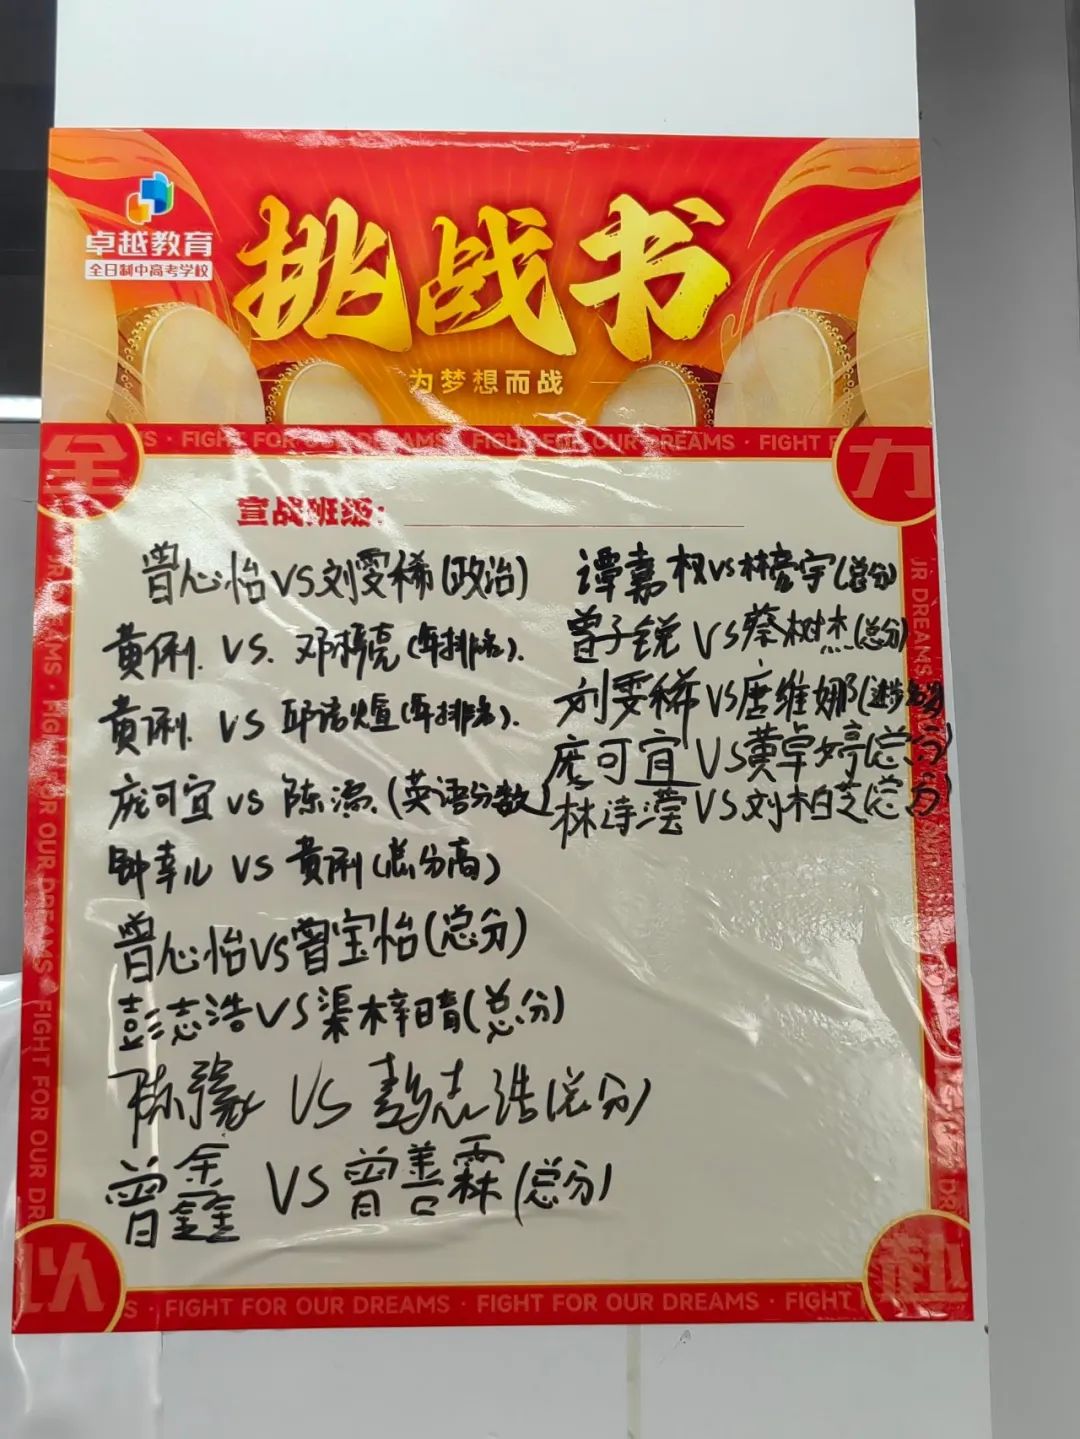 卓越教育
全日制中高考学校
挑战书
为梦想而战
S · FIGHT FOR OUR DREAMS · FIGHT FOR OUR DREAMS · FIGHT F
全
力
宣战班级:
曾心怡VS刘雯稀(政治)
黄俐. VS. 邓梓亮(年排名).
黄俐. VS 邱诺煊(年排名).
庞可宜 VS 陈濡.(英语分数)
钟幸儿 VS 黄俐(总分高)
曾心怡VS曾宝怡(总分)
彭志浩VS渠梓晴(总分)
陈豫 VS 彭志浩(总分)
曾鑫 VS 曾善霖(总分)
谭嘉权VS林彦宇(总分)
曾子锐VS蔡树杰(总分)
刘雯稀VS唐维娜(进步名次)
庞可宜VS黄卓婷(总分)
林诗滢VS刘柏芝(总分)
以
赴
S · FIGHT FOR OUR DREAMS · FIGHT FOR OUR DREAMS · FIGHT